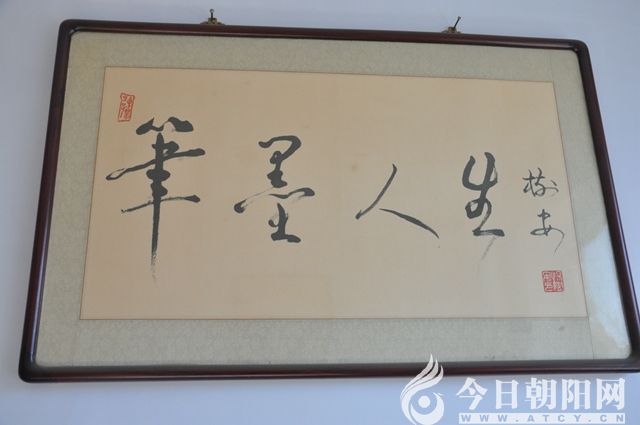 筆墨人生
树安
今日朝阳网
WWW.ATCY.CN